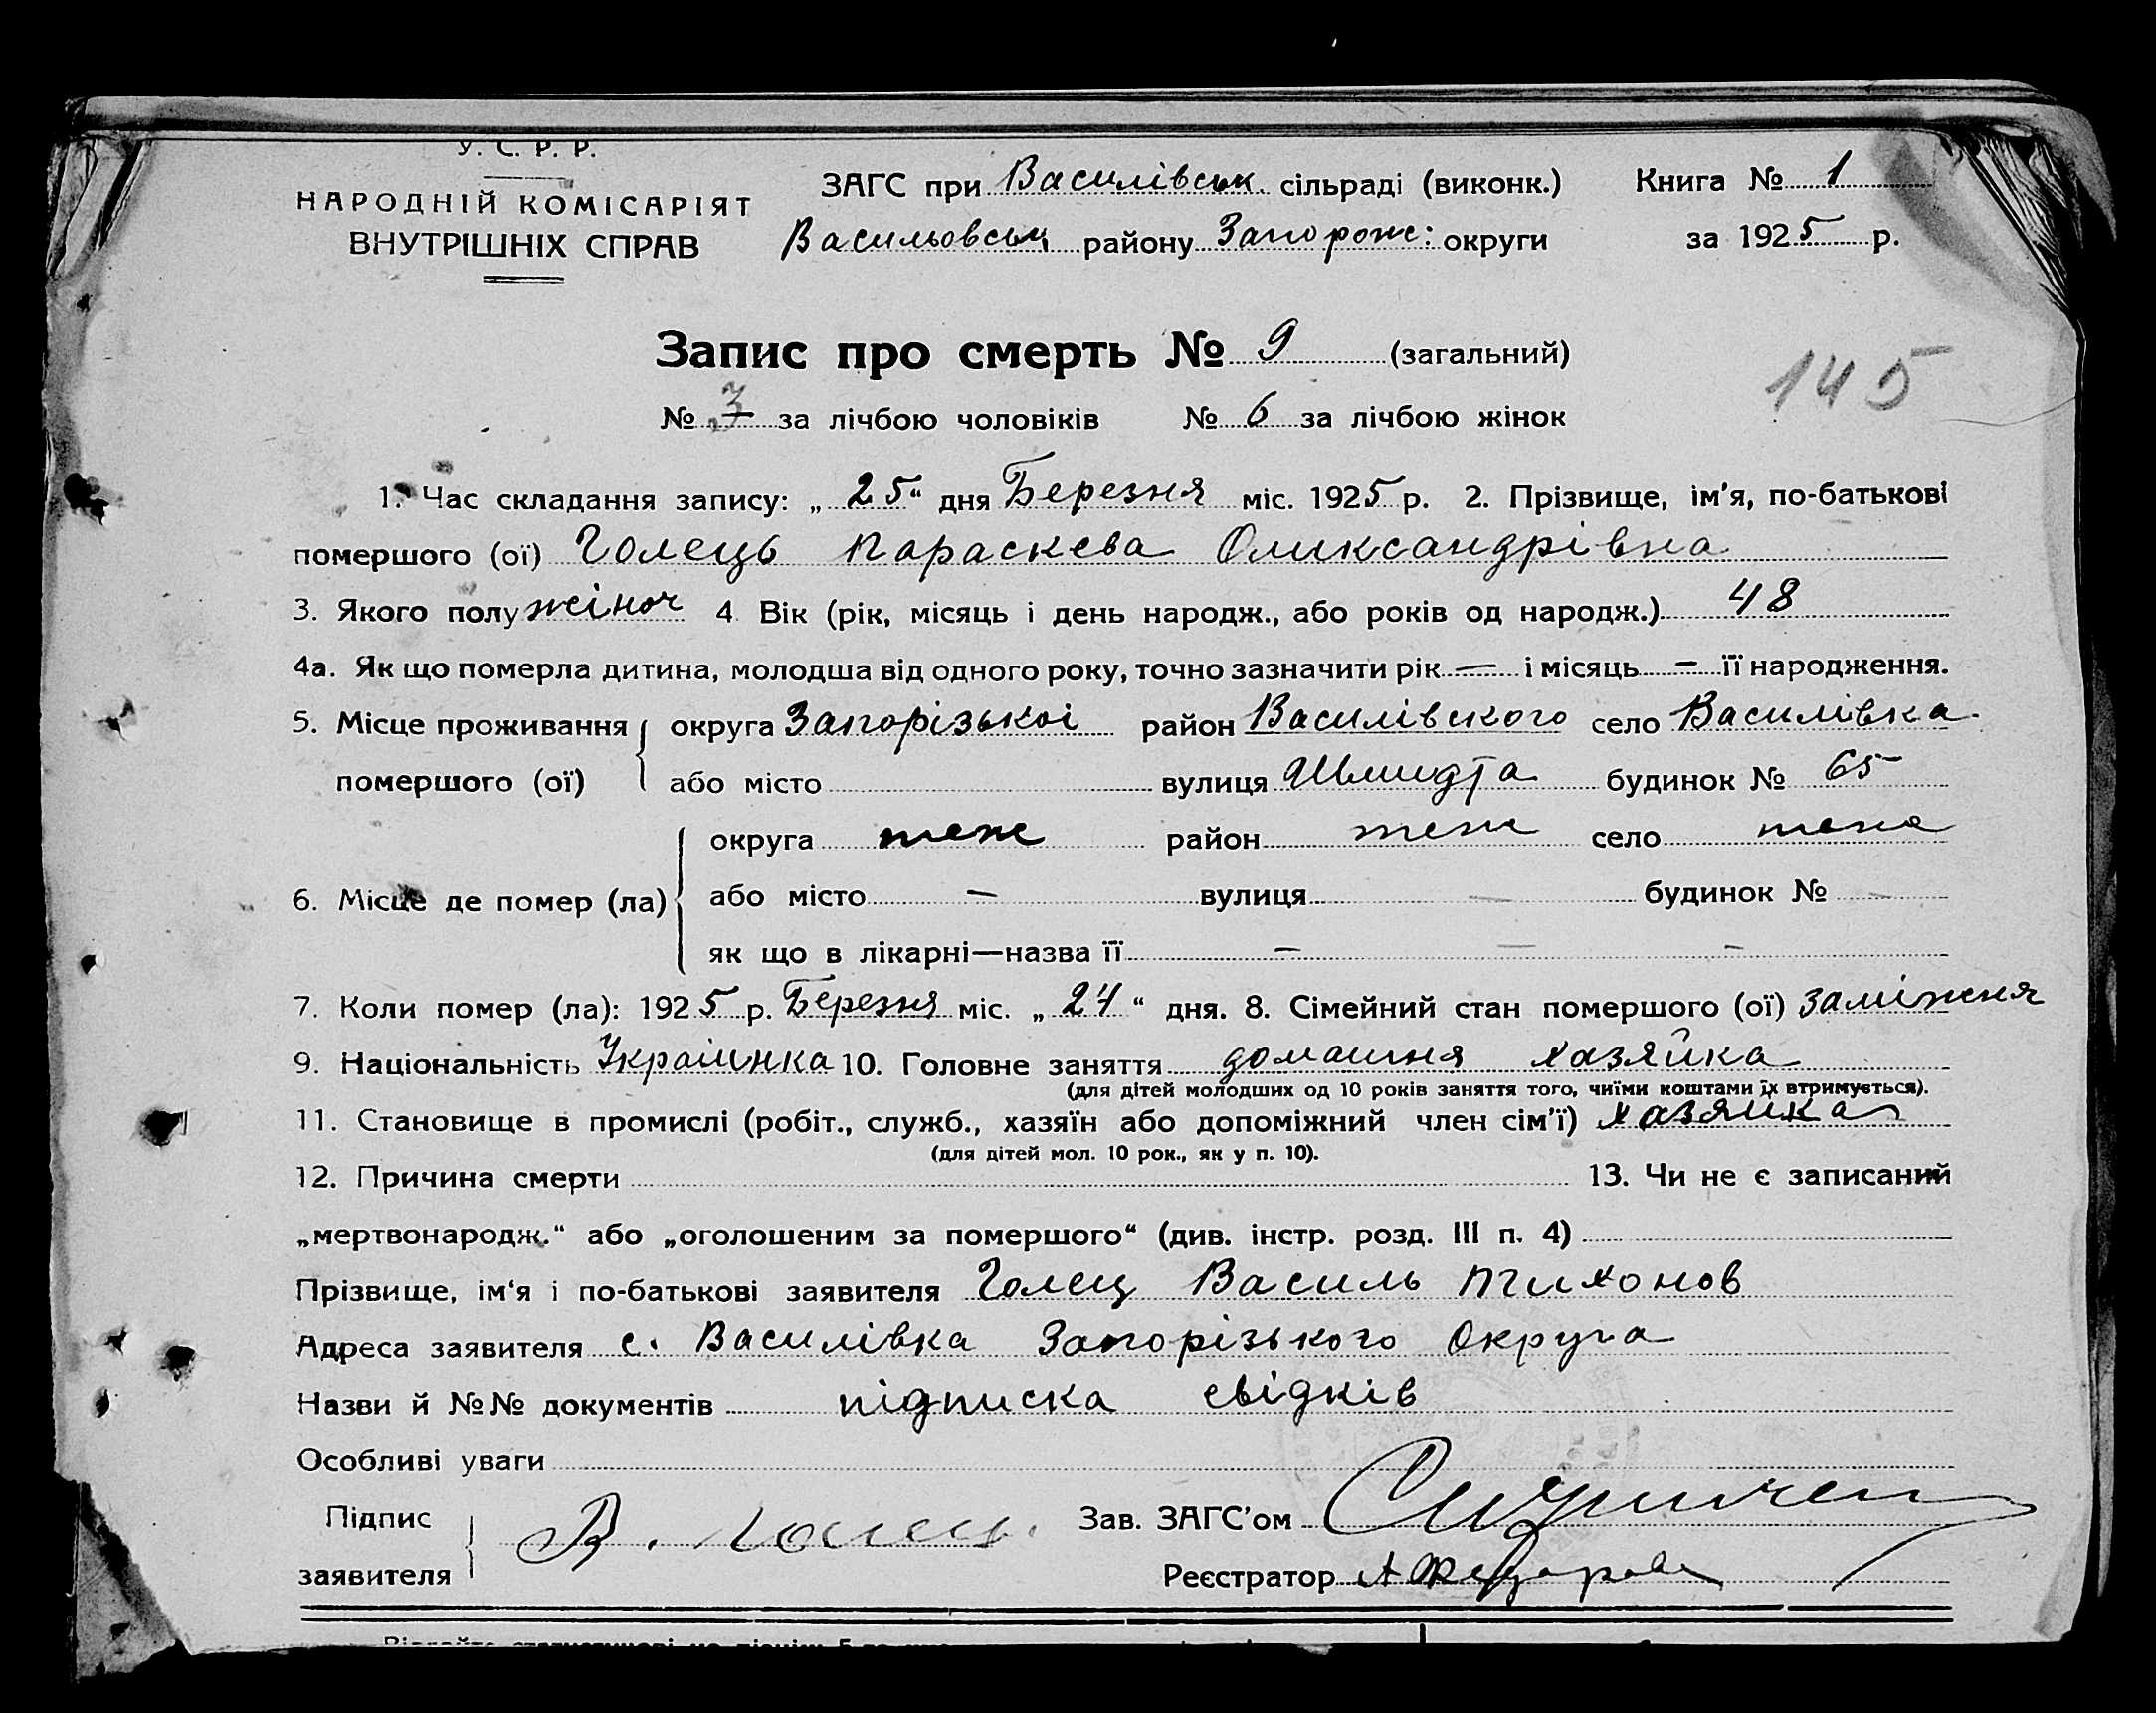 У. С. Р. Р.
НАРОДНІЙ КОМІСАРІЯТ
ВНУТРІШНІХ СПРАВ
ЗАГС при Василівськ. сільраді (виконк.)
Васильовськ району Запорож: округи
Книга № 1
за 1925 р.
Запис про смерть № 9 (загальний)
145
№ 3 за лічбою чоловіків № 6 за лічбою жінок
1. Час складання запису: „25“ дня Березня міс. 1925 р. 2. Прізвище, ім'я, по-батькові
помершого (ої) Голець Параскева Оликсандрівна
3. Якого полу жіноч 4 Вік (рік, місяць і день народж., або років од народж.) 48
4а. Як що померла дитина, молодша від одного року, точно зазначити рік — і місяць — її народження.
5. Місце проживання округа Запорізькоі район Василівского село Василівка.
помершого (ої) або місто вулиця Шмидта будинок № 65
округа теж район теж село теж
6. Місце де помер (ла) або місто — вулиця — будинок № —
як що в лікарні—назва її — — —
7. Коли помер (ла): 1925 р. Березня міс. „24“ дня. 8. Сімейний стан помершого (ої) заміжня
9. Національність Украінка 10. Головне заняття домашня хазяйка
(для дітей молодших од 10 років заняття того, чиїми коштами їх втримується).
11. Становище в промислі (робіт., служб., хазяїн або допоміжний член сім'ї) хазяйка
(для дітей мол. 10 рок., як у п. 10).
12. Причина смерти 13. Чи не є записаний
„мертвонародж.“ або „оголошеним за помершого“ (див. інстр. розд. III п. 4)
Прізвище, ім'я і по-батькові заявителя Голец Василь Тихонов
Адреса заявителя с. Василівка Запорізького Округа
Назви й №№ документів підписка свідків
Особливі уваги
Підпис заявителя В. Голець.
Зав. ЗАГС'ом
Реєстратор А